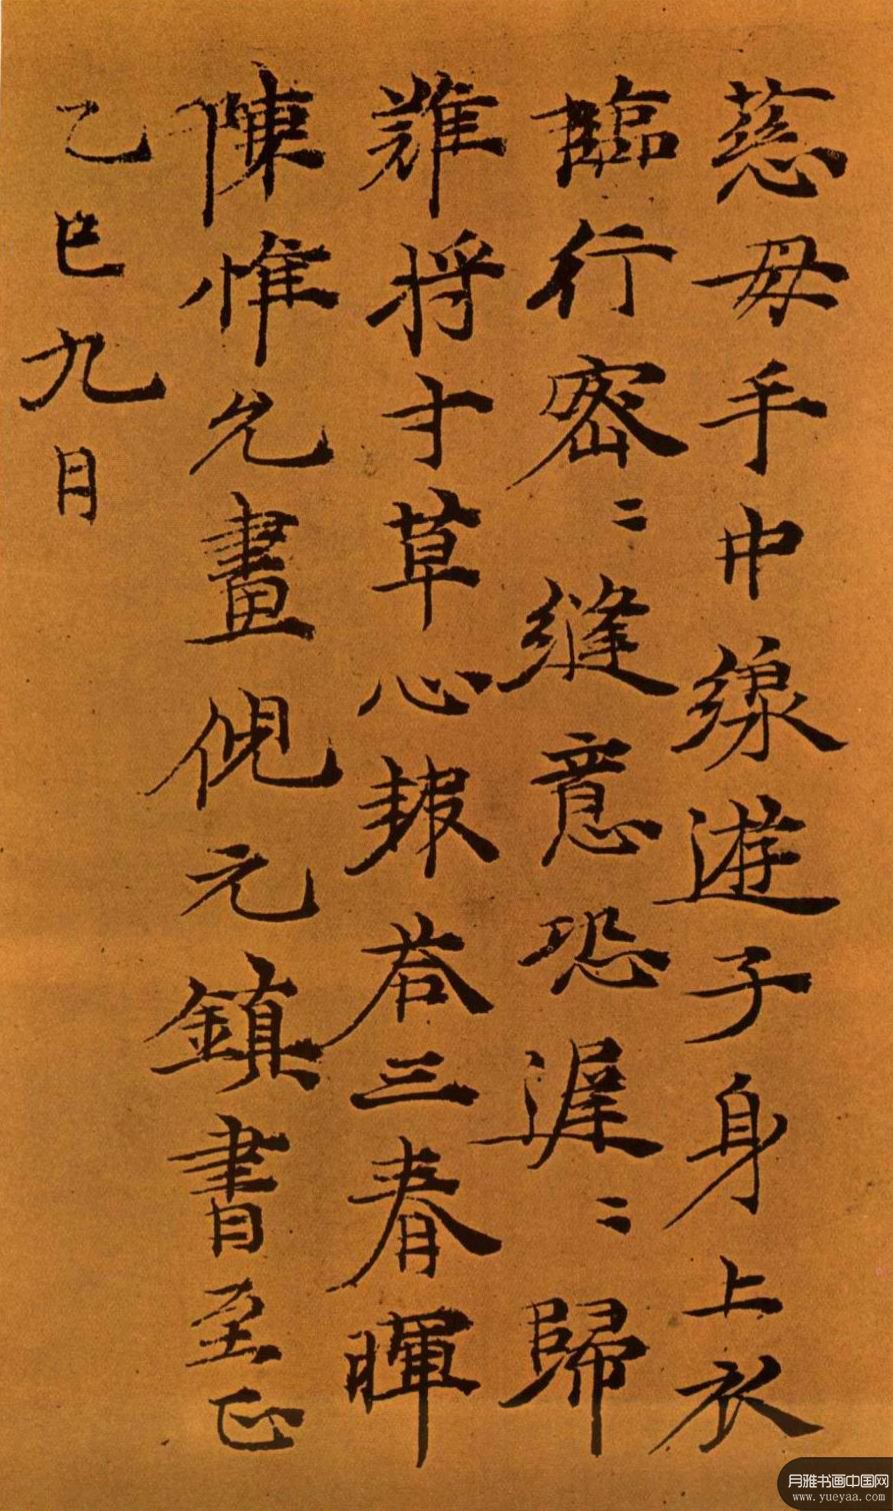 慈母手中線遊子身上衣
臨行密〻縫意恐遲〻歸
難将寸草心報荅三春暉
陳惟允畫倪元鎮書至正
乙巳九月
月雅书画中国网
www.yueyaa.com